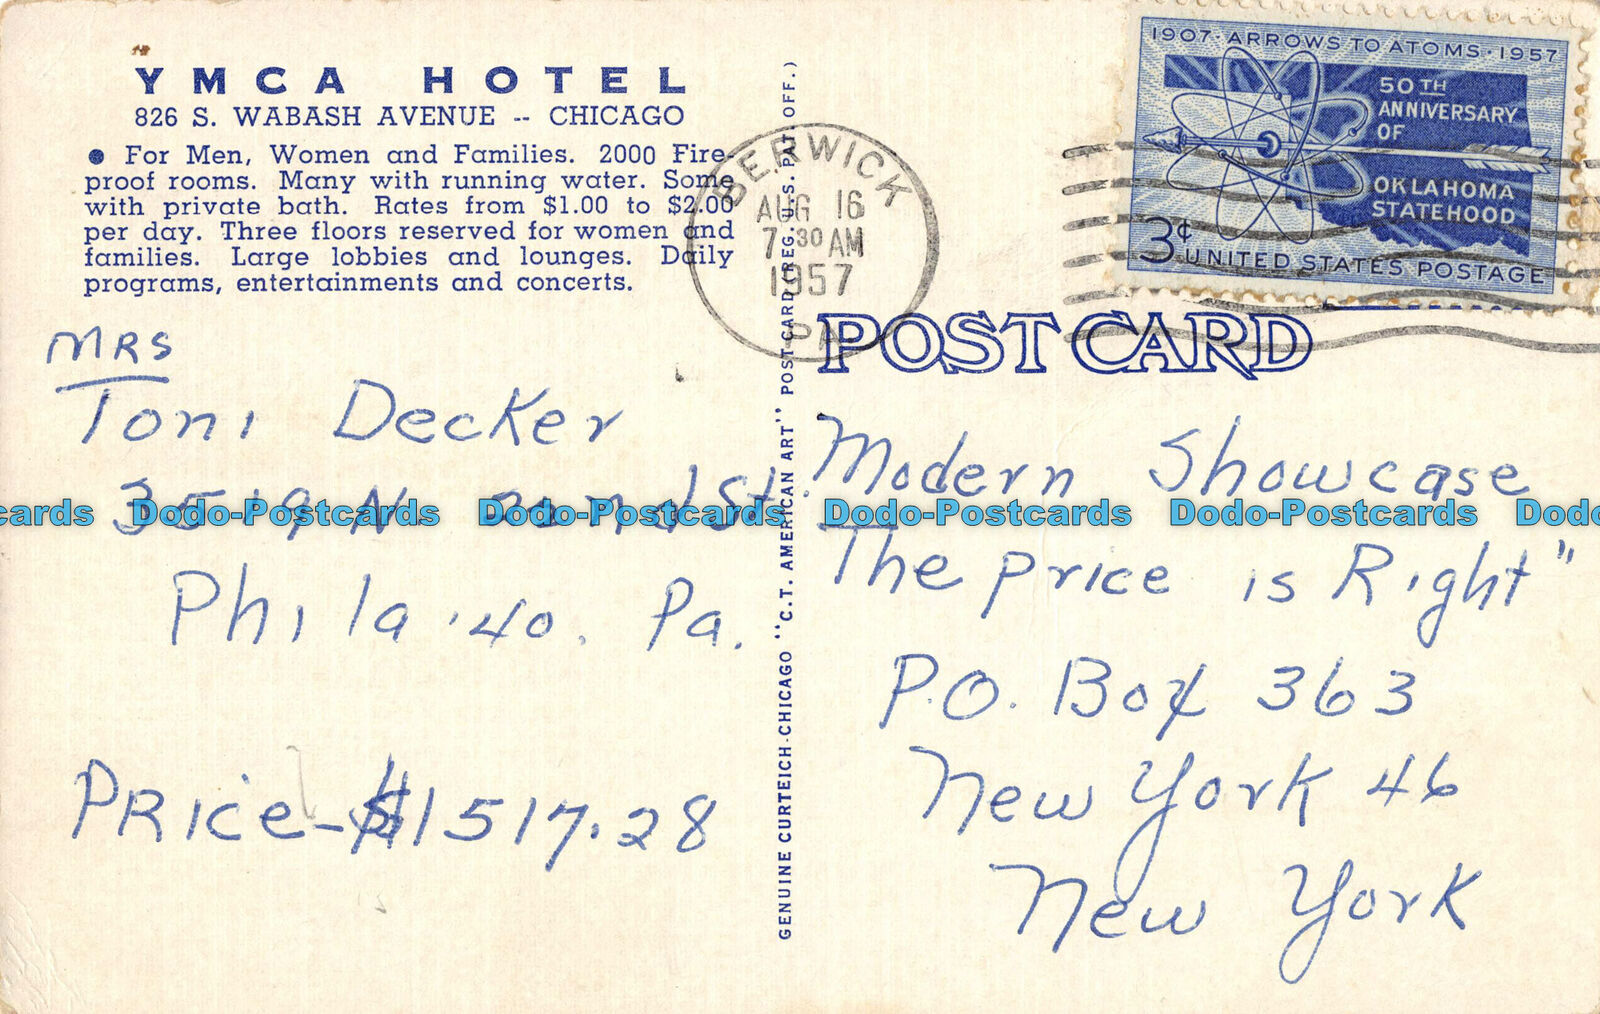 YMCA HOTEL
826 S. WABASH AVENUE -- CHICAGO
● For Men, Women and Families. 2000 Fire-
proof rooms. Many with running water. Some
with private bath. Rates from $1.00 to $2.00
per day. Three floors reserved for women and
families. Large lobbies and lounges. Daily
programs, entertainments and concerts.
MRS
Toni Decker
3519 N St.
Phila. 40. Pa.
PRice - $1517.28
GENUINE CURTEICH-CHICAGO "C.T. AMERICAN ART" POST CARD (REG. U.S. PAT. OFF.)
BERWICK
AUG 16
7 30 AM
1957
PA
1907 · ARROWS TO ATOMS · 1957
50TH
ANNIVERSARY
OF
OKLAHOMA
STATEHOOD
3¢
UNITED STATES POSTAGE
POST CARD
Modern Showcase
The Price is Right"
P.O. Box 363
New York 46
New York
cards Dodo-Postcards Dodo-Postcards Dodo-Postcards Dodo-Postcards Dodo